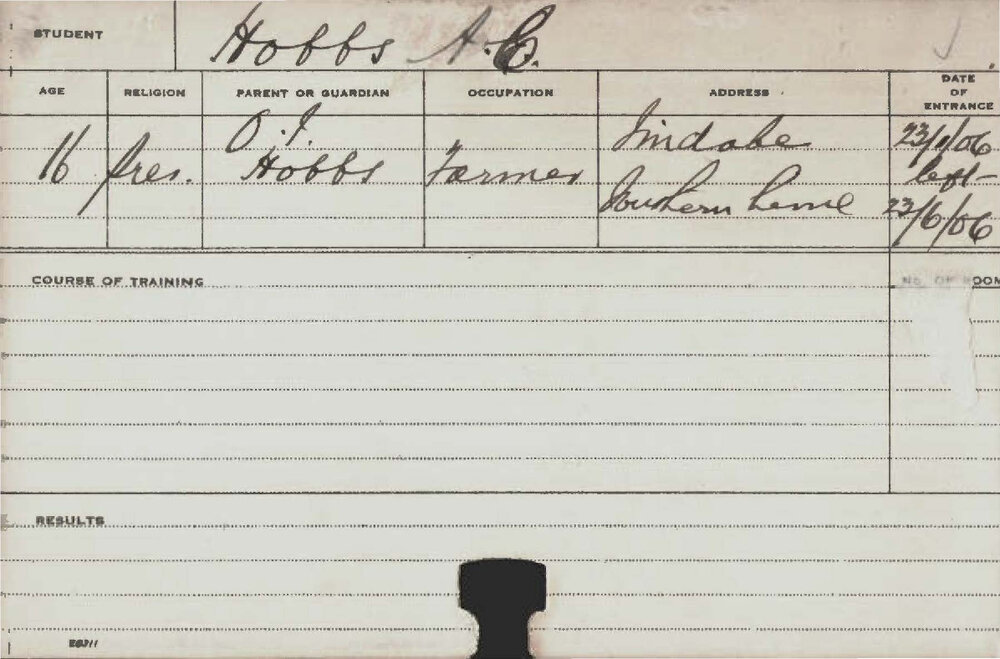 STUDENT Hobbs A.C.
AGE RELIGION PARENT OR GUARDIAN OCCUPATION ADDRESS DATE OF ENTRANCE
16 Pres. O.J. Hobbs Farmer Jindabe 23/1/06
left
Southern Line 23/6/06
COURSE OF TRAINING
No. OF ROOM
RESULTS